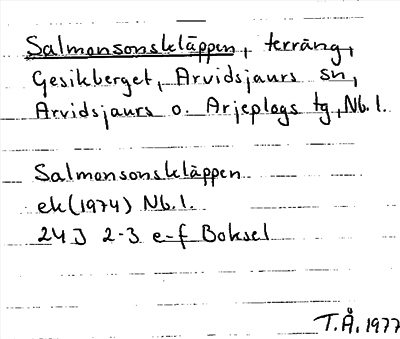 Salmonsonskläppen, terräng,
Gesikberget, Arvidsjaurs sn,
Arvidsjaurs o. Arjeplogs tg, Nb. l.
Salmonsonskläppen
ek (1974) Nb. l.
24 J 2-3 e-f Boksel
T.Å. 1977